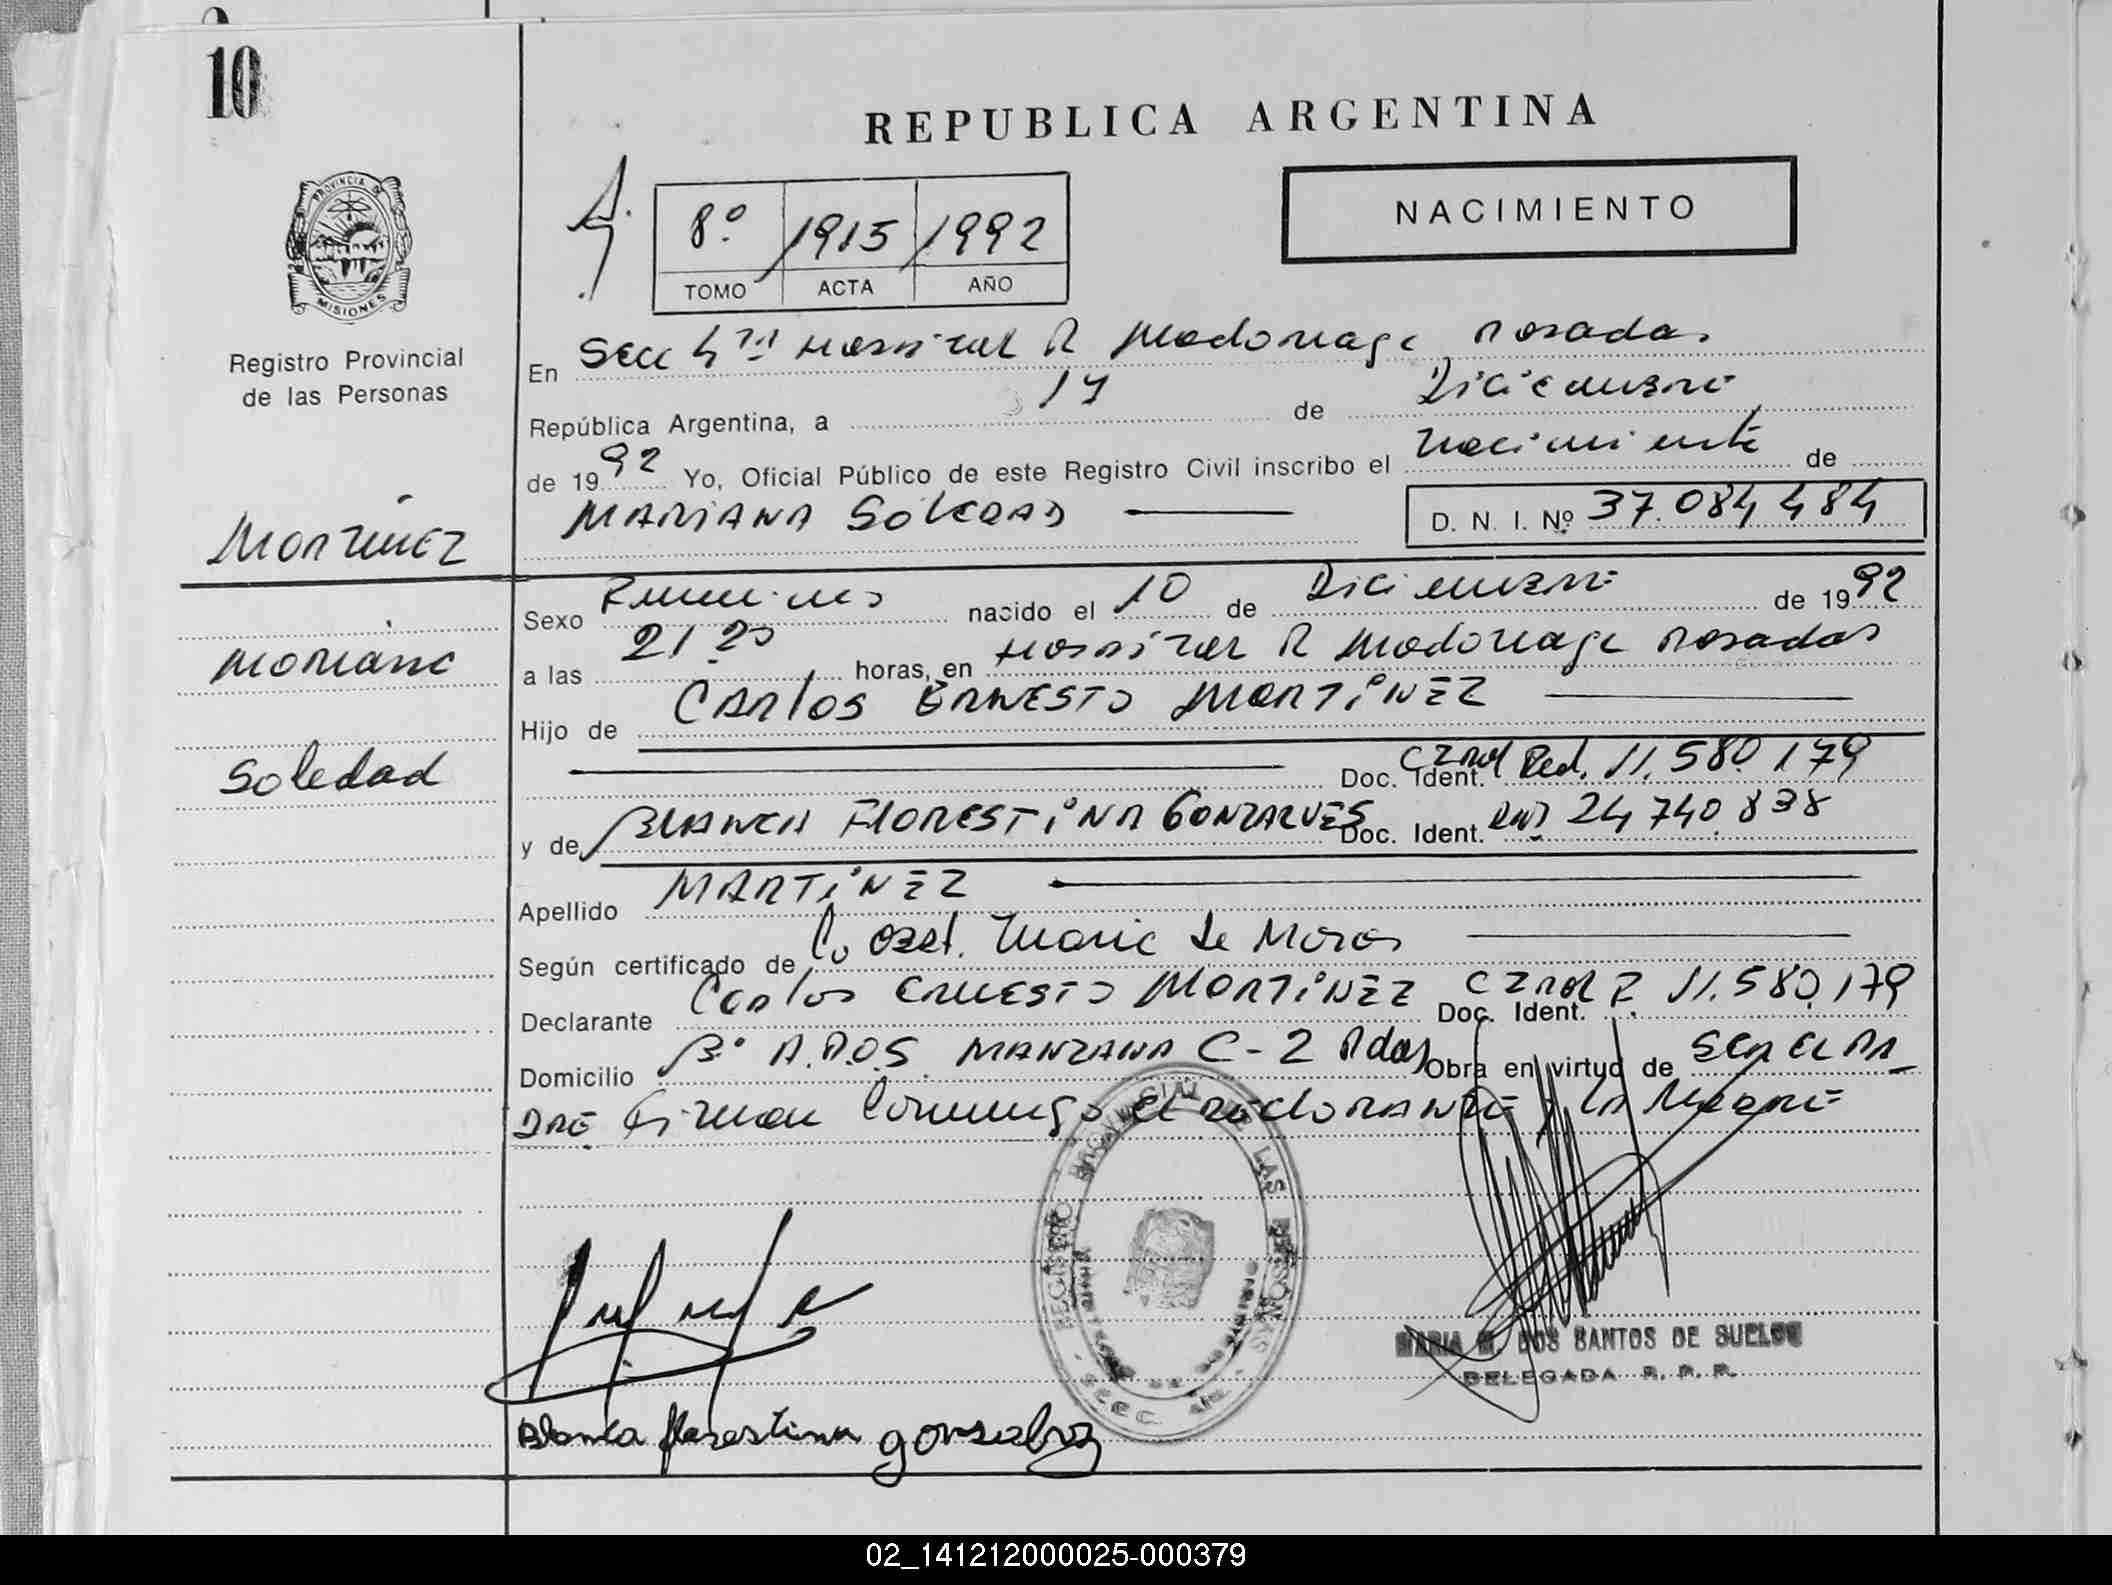 10
REPUBLICA ARGENTINA
PROVINCIA DE
MISIONES
8º 1915 1992
TOMO ACTA AÑO
NACIMIENTO
Registro Provincial
de las Personas
En Secc 4ta Hospital R Madariaga Posadas
República Argentina, a 17 de Diciembre
de 1992 Yo, Oficial Público de este Registro Civil inscribo el nacimiento de
MARIANA SOLEDAD D. N. I. Nº 37.084484
Martinez
Mariana
Soledad
Sexo Femenino nacido el 10 de Diciembre de 1992
a las 21.20 horas, en Hospital R Madariaga Posadas
Hijo de CARLOS ERNESTO MARTINEZ
Doc. Ident. 11.580.179
y de BLANCA FLORESTINA GONZALVES Doc. Ident. DNI 24740.838
Apellido MARTINEZ
Según certificado de Obst. Maria de Moros
Declarante Carlos ERNESTO MARTINEZ Doc. Ident. 11.580.179
Domicilio Bº A.P.O.S. MANZANA C-2 Pdas Obra en virtud de SER EL PA
DRE Firman Conmigo el DECLARANTE y LA MADRE
REGISTRO PROVINCIAL DE LAS PERSONAS
Blanca florestina gonzalvez
MARIA M. DOS SANTOS DE SUELOU
DELEGADA R. P. P.
02_141212000025-000379